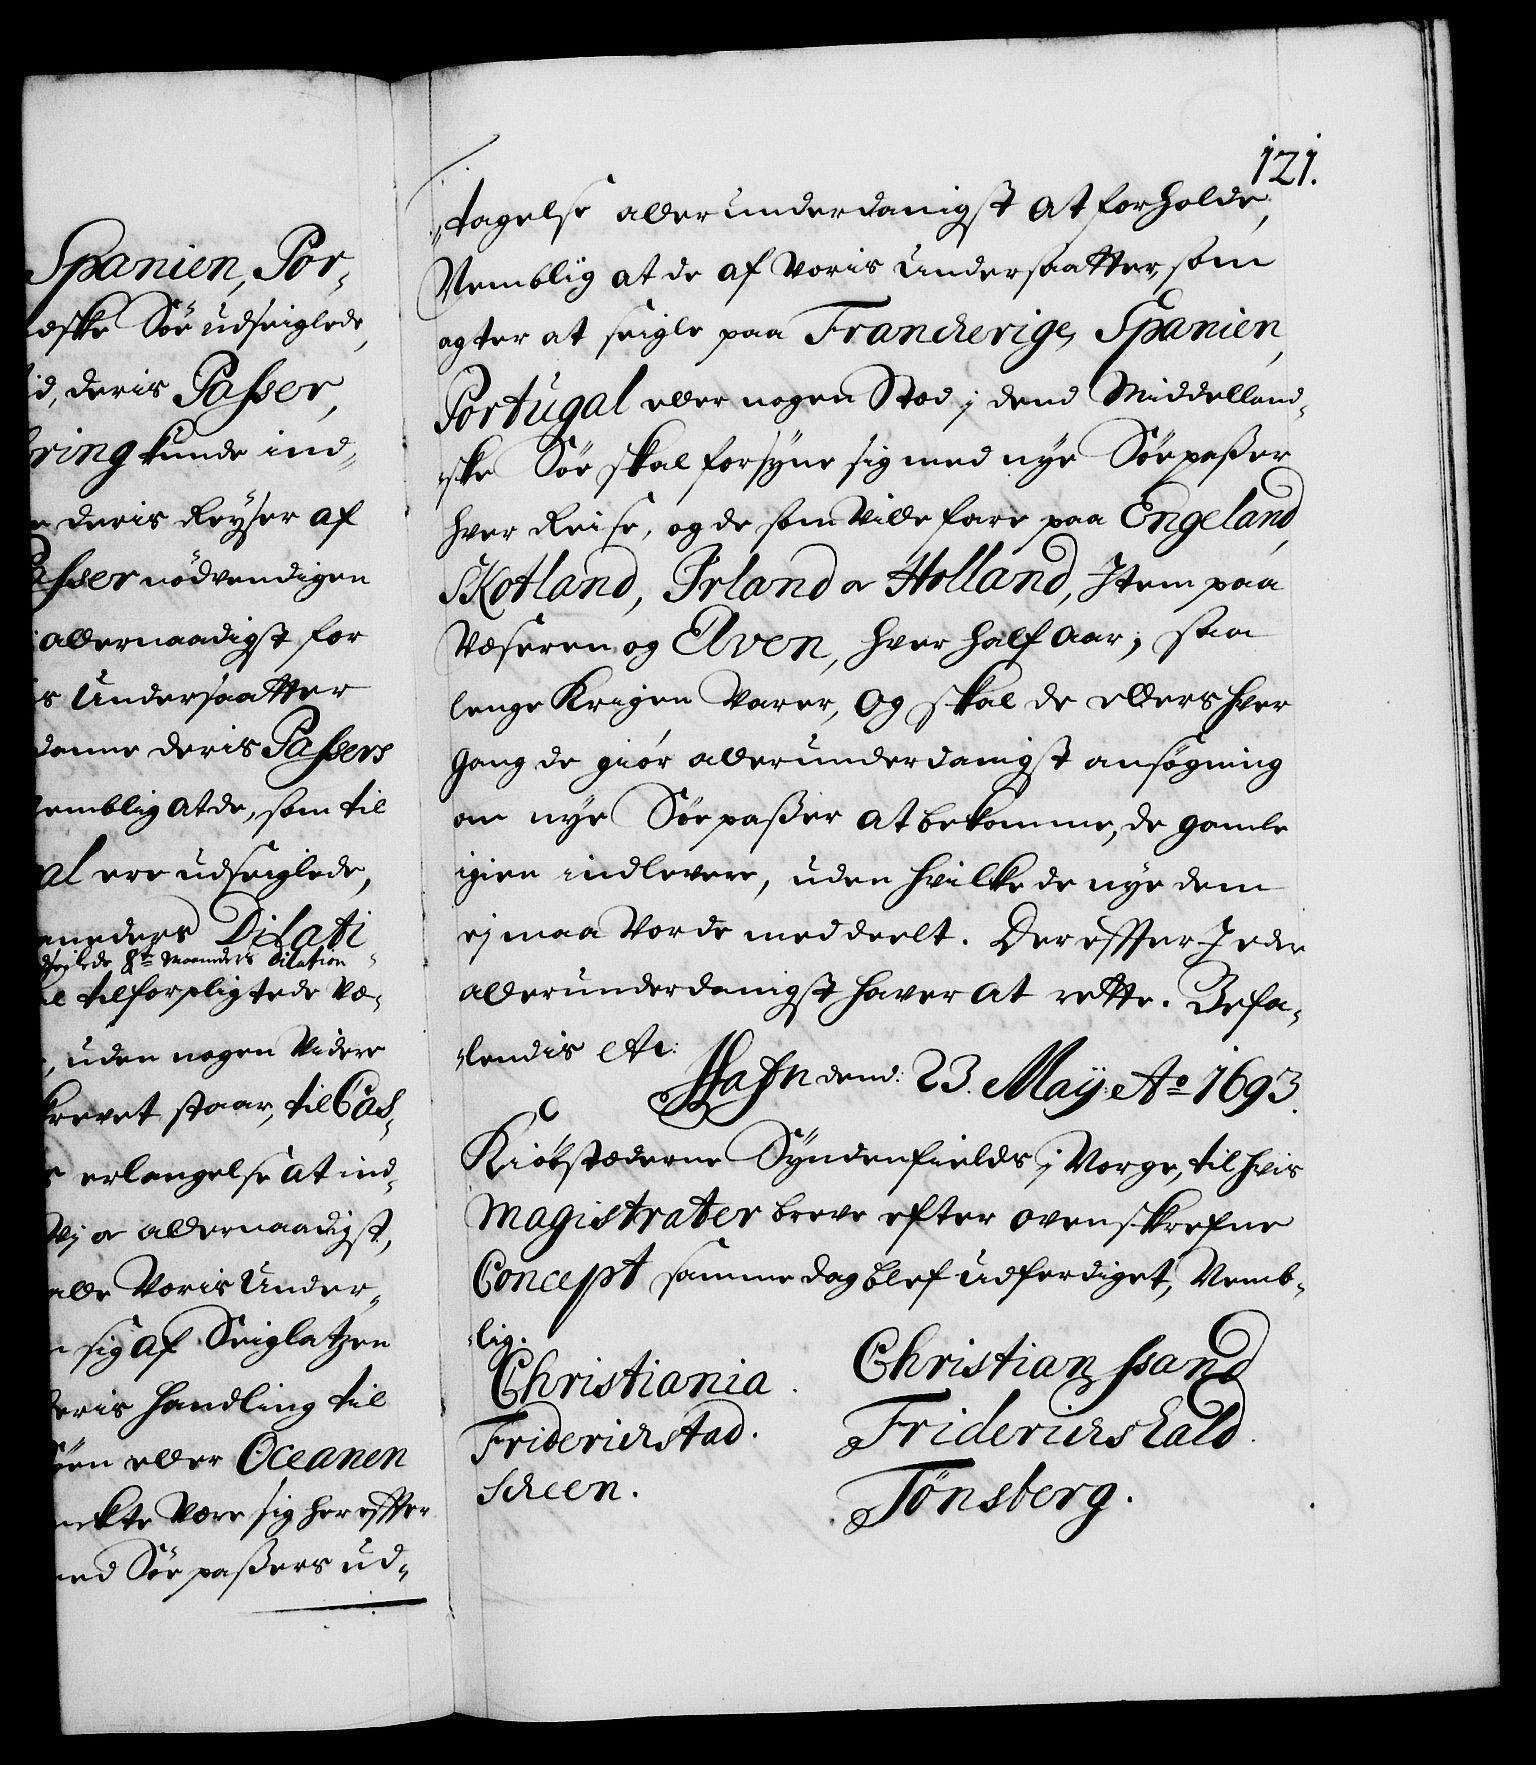 Spanien, Por-
ske Söe udseiglede,
id, deris Passer,
ring kunde ind-
deris Reyser af
asser nödvendigen
allernaadigst for
is Undersaatter
danne deris Passers
emblig at de, som til
al ere udseiglede,
aneders Dilati
seilede 8te Maaneders dilation
tilforpligtede Væ-
, uden nogen Videre
krevet staar, til Cas-
erlangelse at ind-
Vj & allernaadigst,
alle Voris Under-
sig af Seiglatzen
deris Handling til
öen eller Oceanen
nckte Være sig herefter
ed Söe passers ud-
121.
-tagelse allerunderdanigst at forholde,
Nemblig at de af Voris Undersaatter, som
agter at seigle paa Franckerige, Spanien,
Portugal eller nogen Stad j dend Middelland-
-ske Söe skal forsyne sig med nye Söepasser
hver Reise, og de som Ville fare paa Engeland,
Skotland, Irland & Holland, Item paa
Wæseren og Elven, hver half Aar, saa
lenge Krigen Varer, Og skal de ellers hver
gang de giör allerunderdanigst ansögning
om nye Söepasser at bekomme, de gamle
igien indlevere, uden hvilke de nye dem
ej maa Vorde meddeelt. Derefter I eder
allerunderdanigst haver at rette. Befa-
-lendis etc:
Hafn dend: 23. Maij: Ao 1693.
Kiöbstæderne Syndenfields j Norge, til hvis
Magistrater breve efter ovenskrefne
Concept samme dag blef udferdiget, Nemb-
-lig.
Christiania. Christianssand
Friderichstad. Friderichshald.
Scheen. Tönsberg.